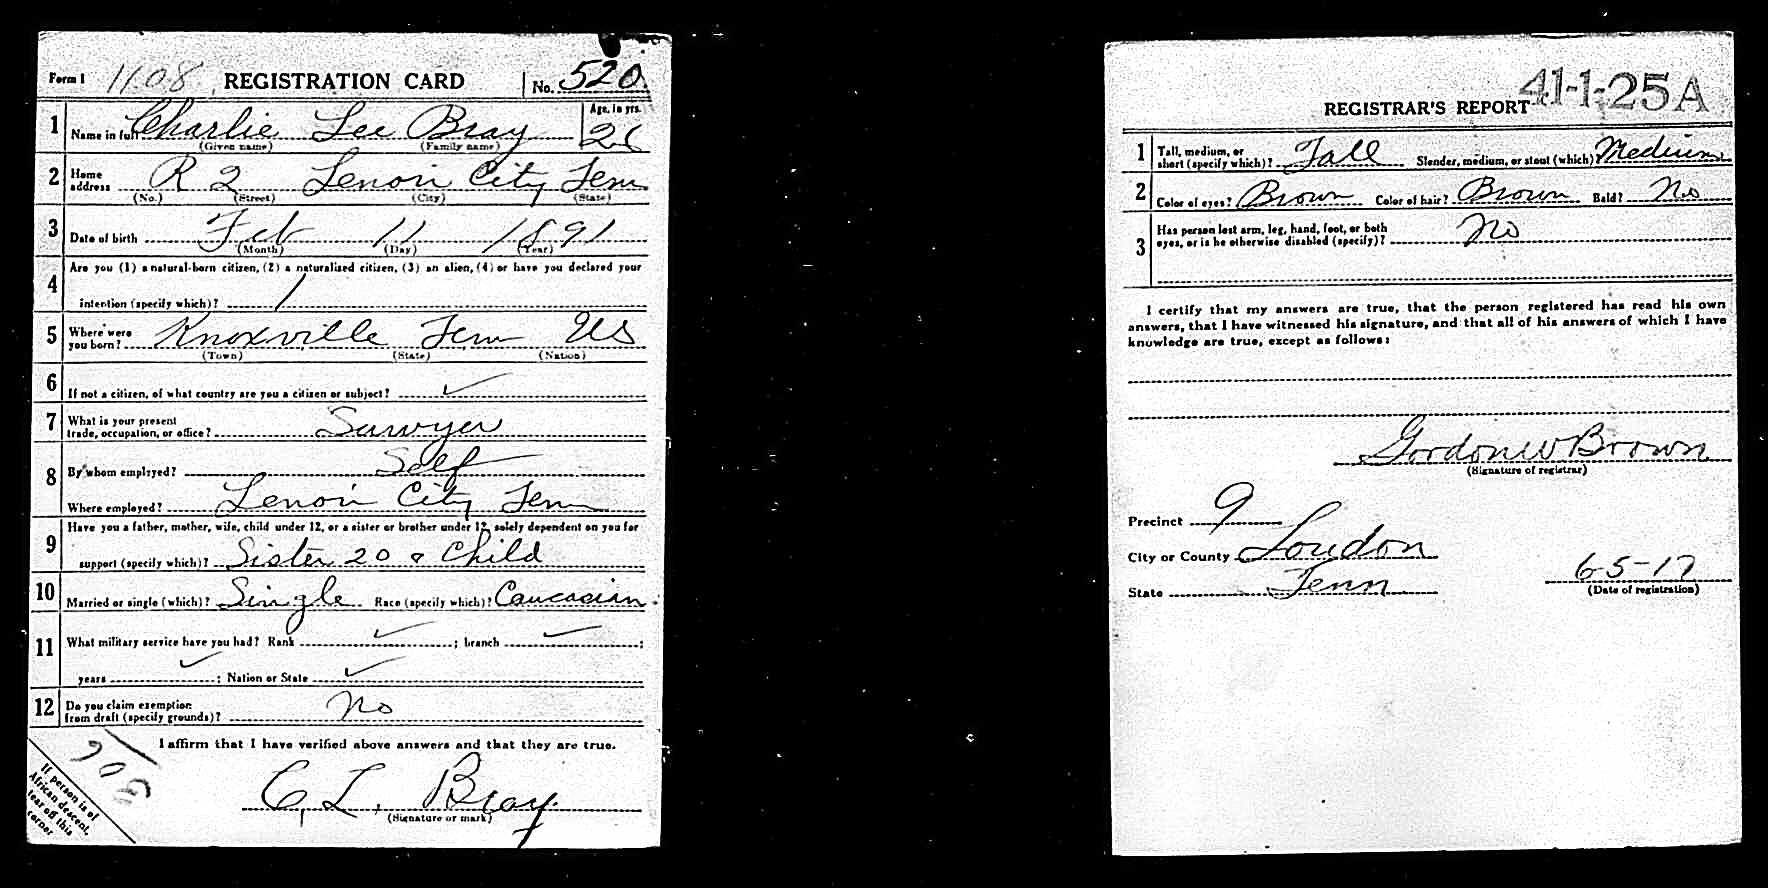 Form 1 1108 REGISTRATION CARD No. 520
1 Name in full Charlie Lee Bray Age, in yrs. 26
(Given name) (Family name)
2 Home address R 2 Lenoir City Tenn
(No.) (Street) (City) (State)
3 Date of birth Feb 11 1891
(Month) (Day) (Year)
4 Are you (1) a natural-born citizen, (2) a naturalized citizen, (3) an alien, (4) or have you declared your
intention (specify which)? 1
5 Where were you born? Knoxville Tenn US
(Town) (State) (Nation)
6 If not a citizen, of what country are you a citizen or subject? ✓
7 What is your present
trade, occupation, or office? Sawyer
8 By whom employed? Self
Where employed? Lenoir City Tenn
9 Have you a father, mother, wife, child under 12, or a sister or brother under 12, solely dependent on you for
support (specify which)? Sister 20 & Child
10 Married or single (which)? Single Race (specify which)? Caucasian
11 What military service have you had? Rank ✓ ; branch ✓ ;
years ✓ ; Nation or State ✓
12 Do you claim exemption
from draft (specify grounds)? No
I affirm that I have verified above answers and that they are true.
C. L. Bray
(Signature or mark)
If person is of
African descent,
tear off this
corner
41-1-25 A
REGISTRAR'S REPORT
1 Tall, medium, or
short (specify which)? Tall Slender, medium, or stout (which)? Medium
2 Color of eyes? Brown Color of hair? Brown Bald? No
3 Has person lost arm, leg, hand, foot, or both
eyes, or is he otherwise disabled (specify)? No
I certify that my answers are true, that the person registered has read his own
answers, that I have witnessed his signature, and that all of his answers of which I have
knowledge are true, except as follows:
Gordon W Brown
(Signature of registrar)
Precinct 9
City or County Loudon
State Tenn
6-5-17
(Date of registration)